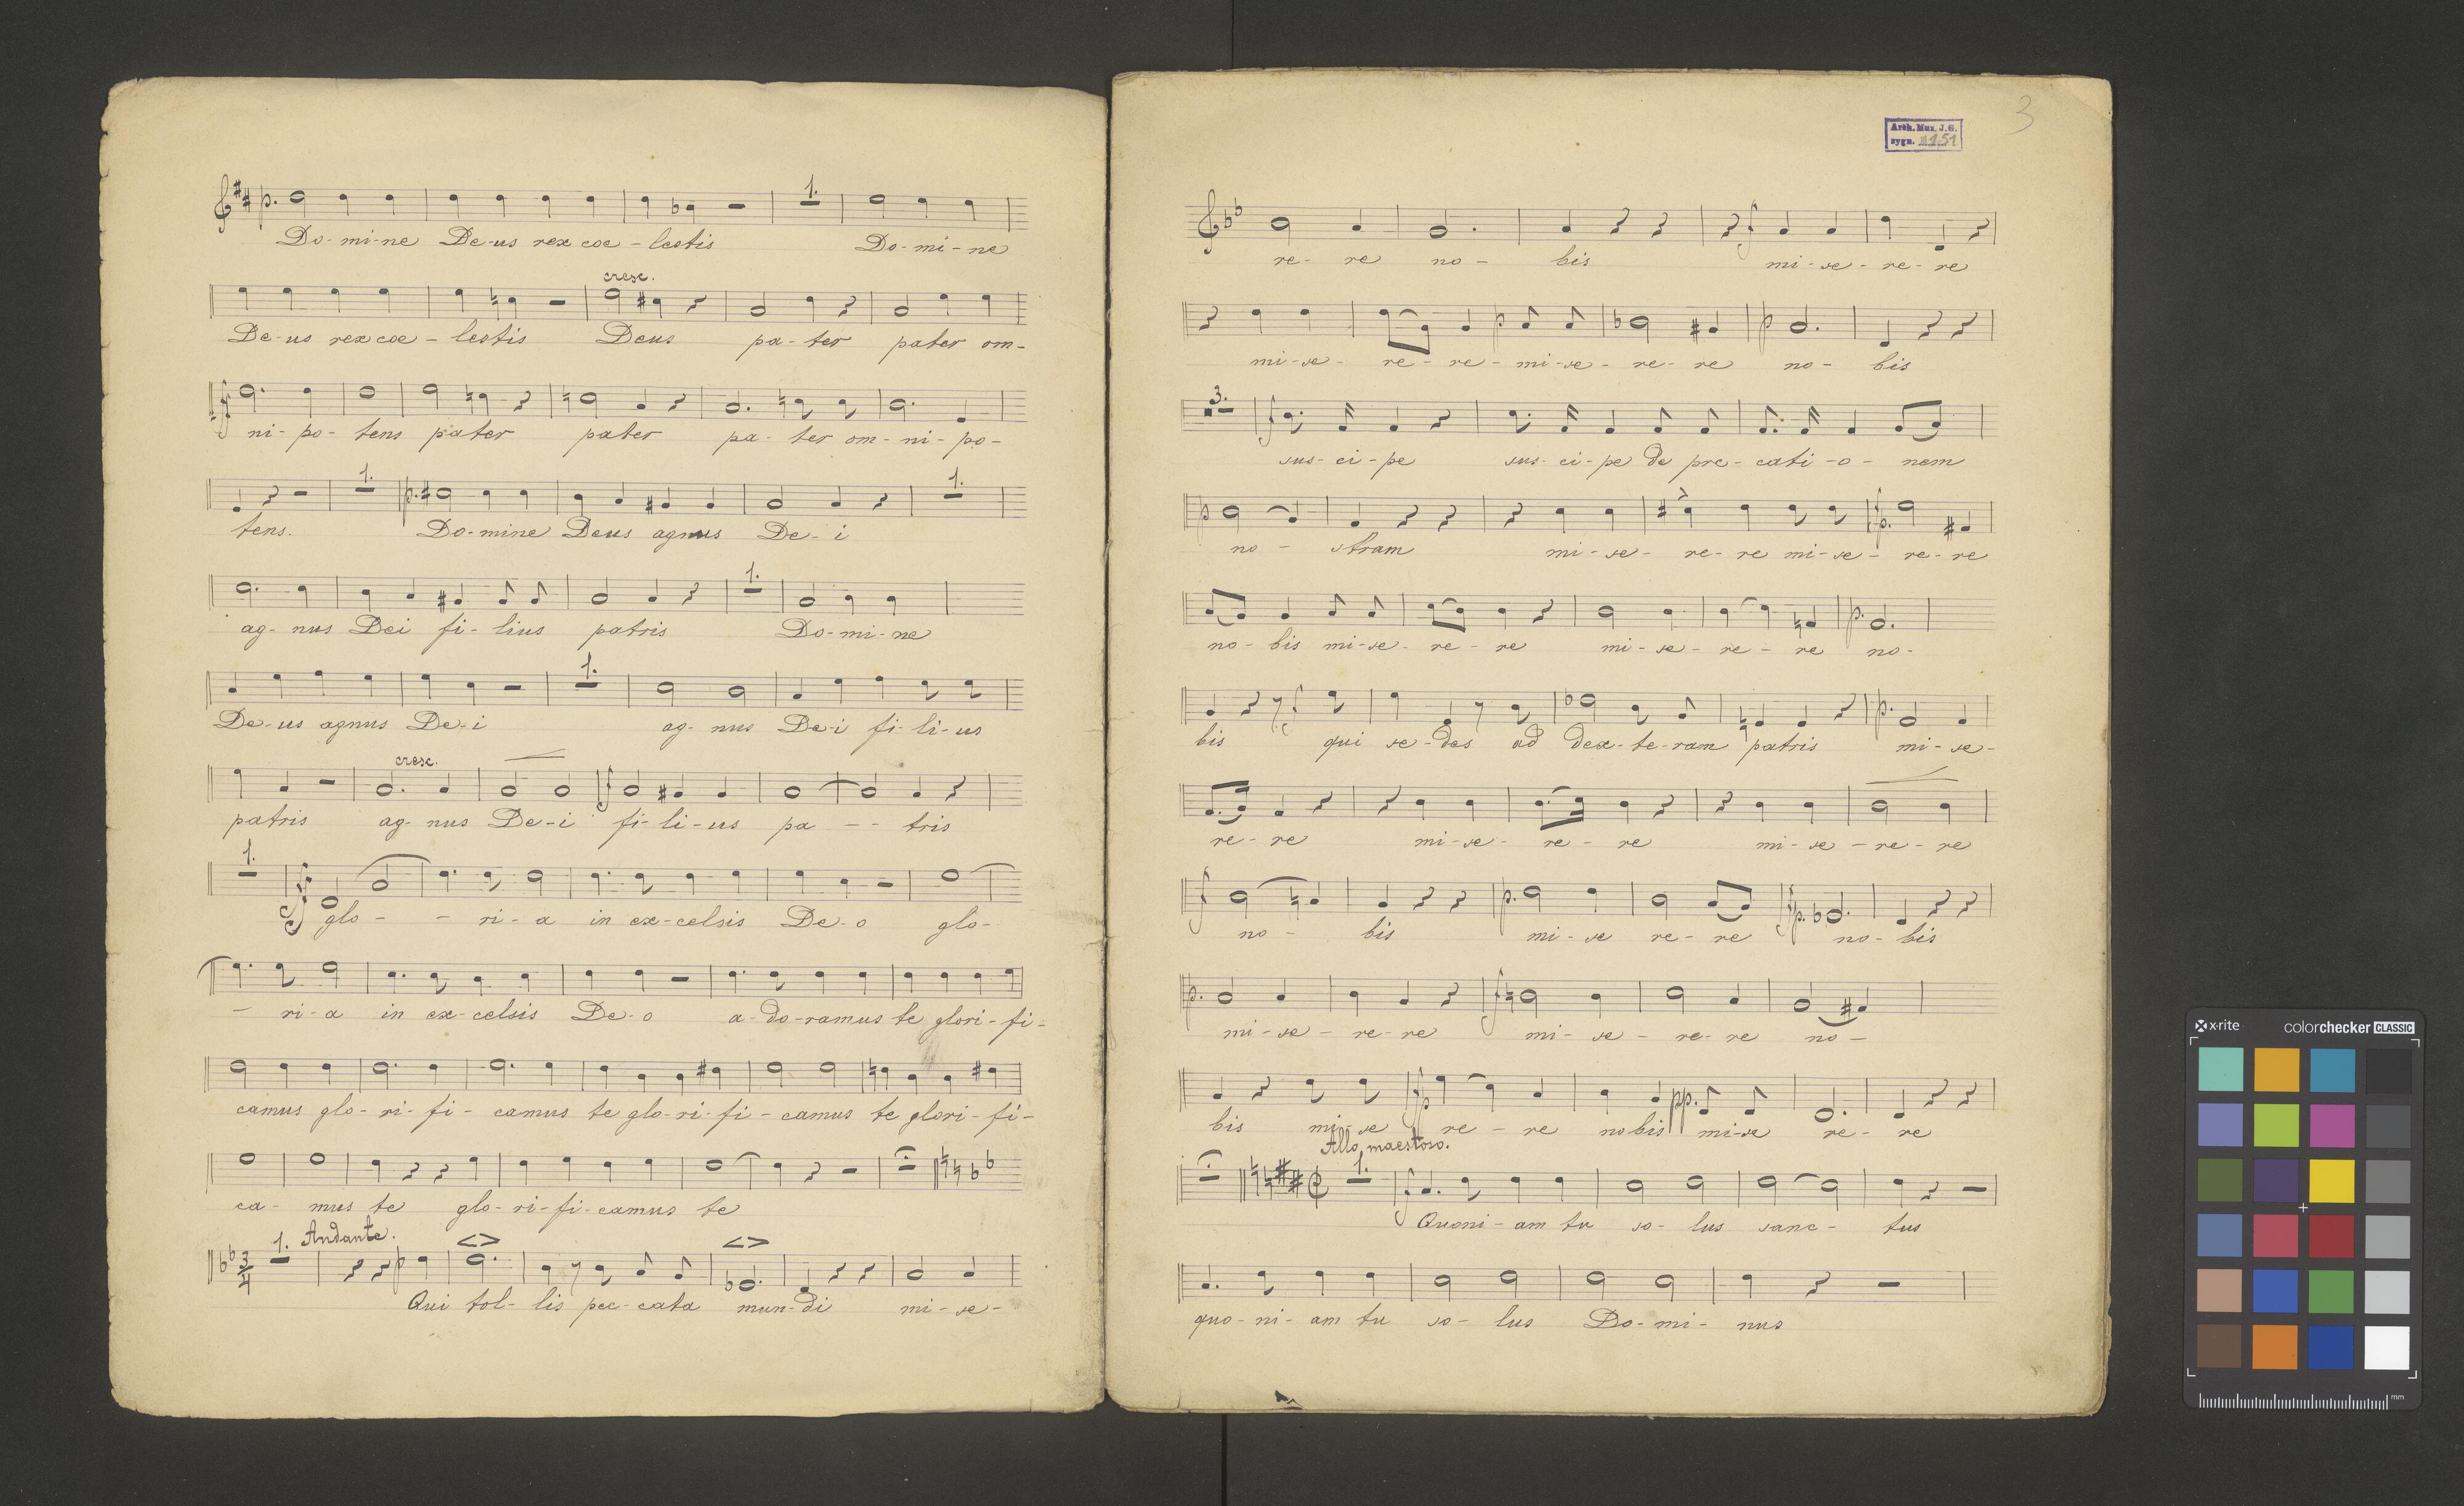 1.
p. Do-mi-ne De-us rex coe-lestis Do-mi-ne
cresc.
De-us rex coe-lestis Deus pa-ter pater om-
f ni-po-tens pater pater pa-ter om-ni-po-
1. 1.
tens. p. Do-mine Deus agnus De-i
1.
ag-nus Dei fi-lius patris Do-mi-ne
1.
De-us agnus De-i ag-nus De-i fi-li-us
cresc.
patris ag-nus De-i f fi-li-us pa--tris
1.
ff glo--ri-a in ex-celsis De-o glo-
-ri-a in ex-celsis De-o a-do-ramus te glori-fi-
camus glo-ri-fi-camus te glo-ri-fi-camus te glori-fi-
ca-mus te glo-ri-fi-camus te
1. Andante.
3/4 p
Qui tol-lis pec-cata mun-di mi-se-
3
Arch. Muz. J. G.
sygn. III 151
re-re no-bis f mi-se-re-re
mi-se-re-re-mi-se-re-re no-bis
3.
f sus-ci-pe sus-ci-pe de pre-cati-o-nem
p no-stram mi-se-re-re mi-se-re-re
no-bis mi-se-re-re mi-se-re-re p. no-
bis f qui se-des ad dex-te-ram patris p. mi-se-
re-re mi-se-re-re mi-se-re-re
f no-bis p. mi-se re-re fp. no-bis
p. mi-se-re-re f mi-se-re-re no-
bis mi-se fp re-re nobis pp. mi-se re-re
Allo maestoso.
1.
f Quoni-am tu so-lus sanc-tus
quo-ni-am tu so-lus Do-mi-nus
x-rite colorchecker CLASSIC
mm